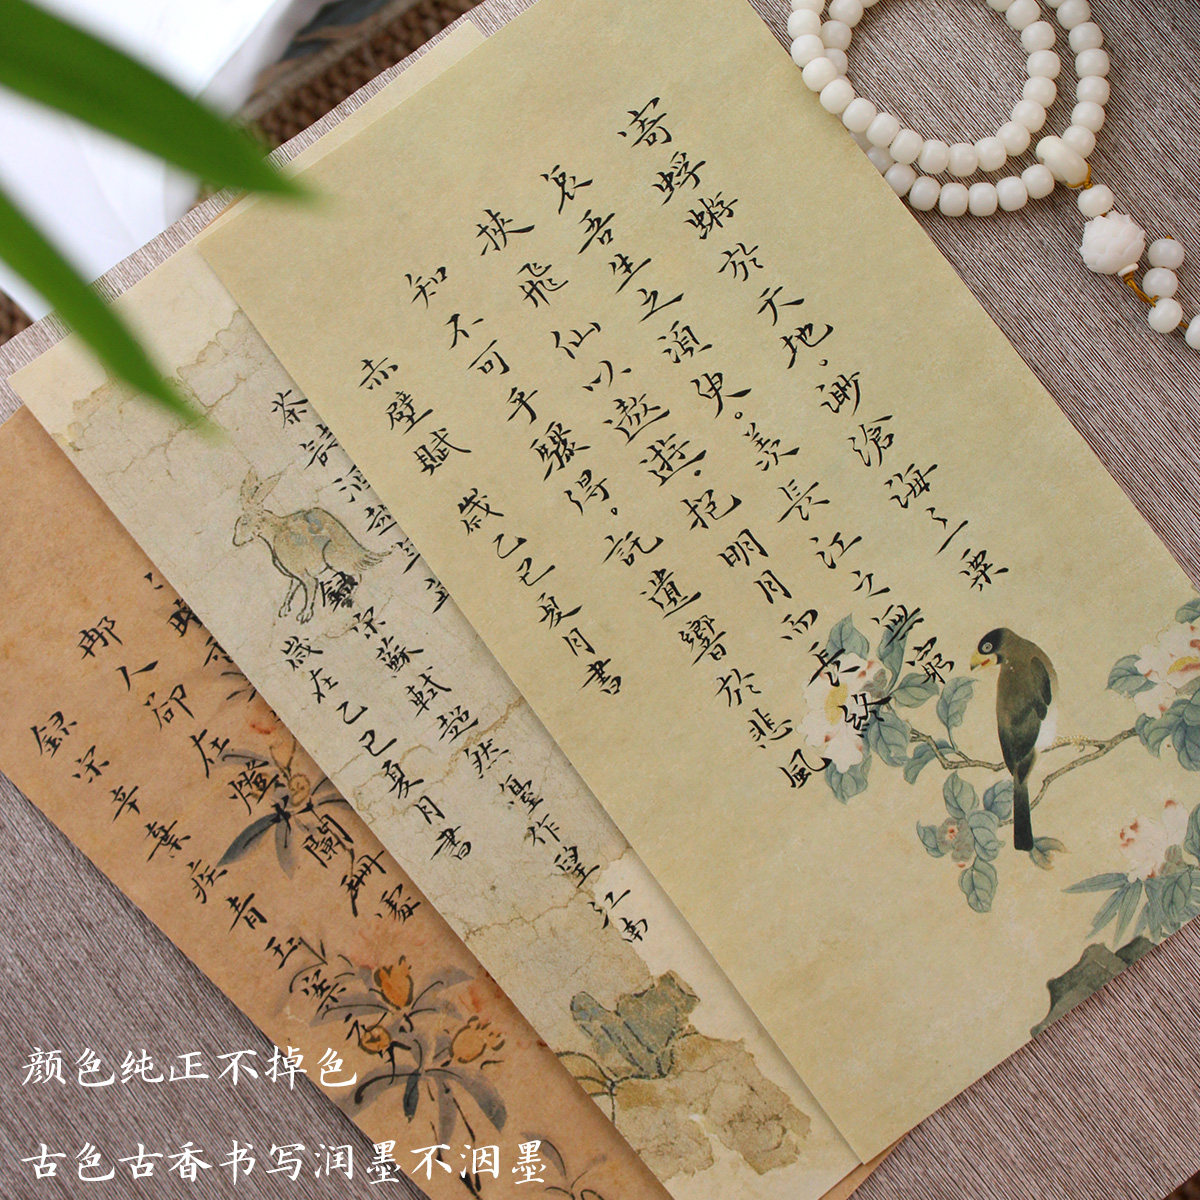 寄蜉蝣於天地，渺滄海之一粟
哀吾生之須臾。羨長江之無窮
挾飛仙以遨遊，抱明月而長終
知不可乎驟得。託遺響於悲風
赤壁賦 歲乙巳夏月書
茶詩酒趁年
錄宋蘇軾超然臺作望江南
歲在乙巳夏月書
那人卻在燈火闌珊處
錄宋辛棄疾青玉案元夕
颜色纯正不掉色
古色古香书写润墨不洇墨